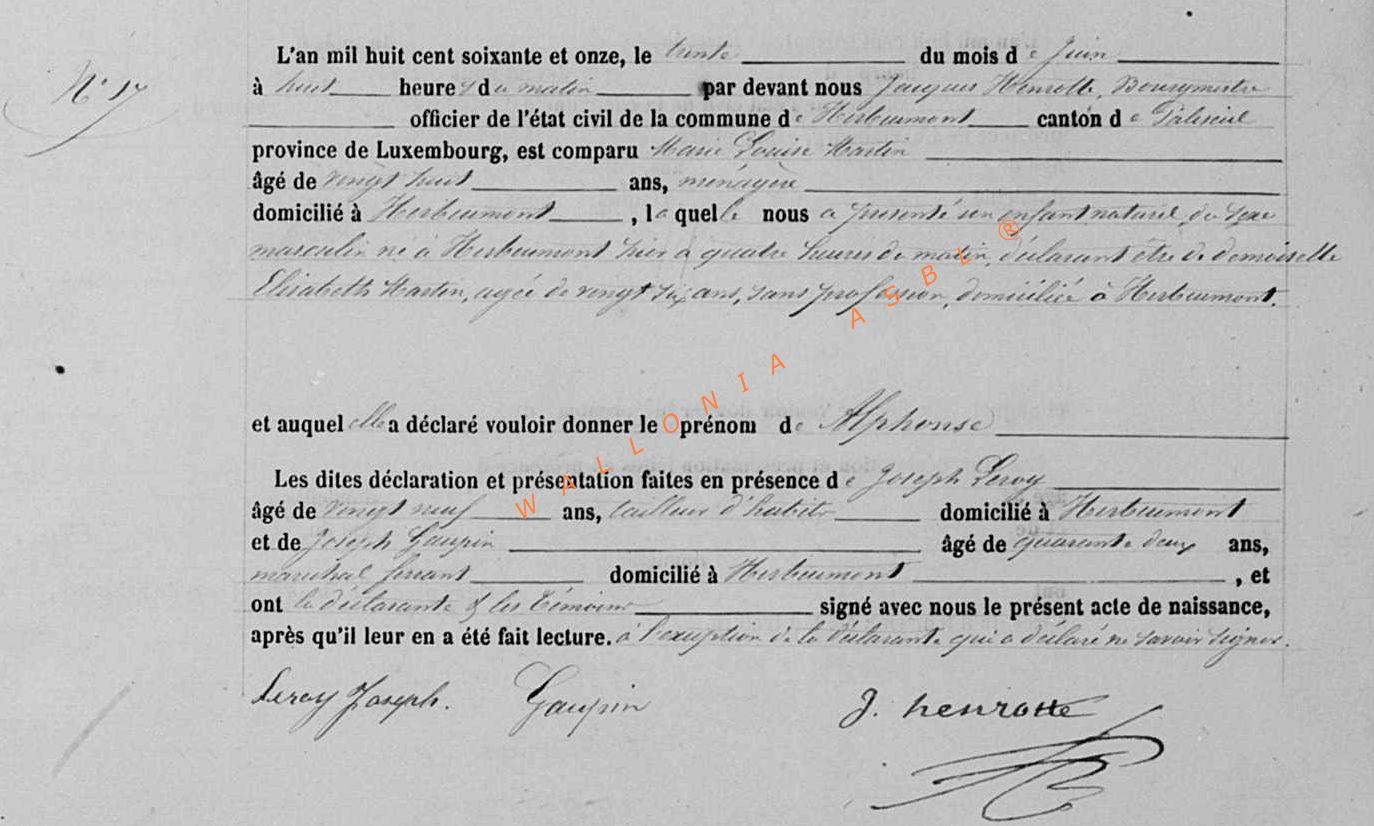 N° 17
L'an mil huit cent soixante et onze, le trente du mois de Juin
à huit heures du matin par devant nous Jacques Henrotte, Bourgmestre
officier de l'état civil de la commune de Herbeumont canton de Paliseul
province de Luxembourg, est comparu Marie Louise Martin
âgé de vingt huit ans, ménagère
domicilié à Herbeumont, laquelle nous a présenté un enfant naturel du sexe
masculin né à Herbeumont hier à quatre heures du matin, déclarant être de demoiselle
Elisabeth Martin, agée de vingt six ans, sans profession, domiciliée à Herbeumont.
et auquel elle a déclaré vouloir donner le prénom de Alphonse
Les dites déclaration et présentation faites en présence de Joseph Leroy
âgé de vingt neuf ans, tailleur d'habits domicilié à Herbeumont
et de Joseph Gaupin âgé de quarante deux ans,
maréchal ferrant domicilié à Herbeumont, et
ont la déclarante & les témoins signé avec nous le présent acte de naissance,
après qu'il leur en a été fait lecture. à l'exception de la déclarante qui a déclaré ne savoir signer.
Leroy Joseph. Gaupin J. henrotte
WALLONIA ASBL ®